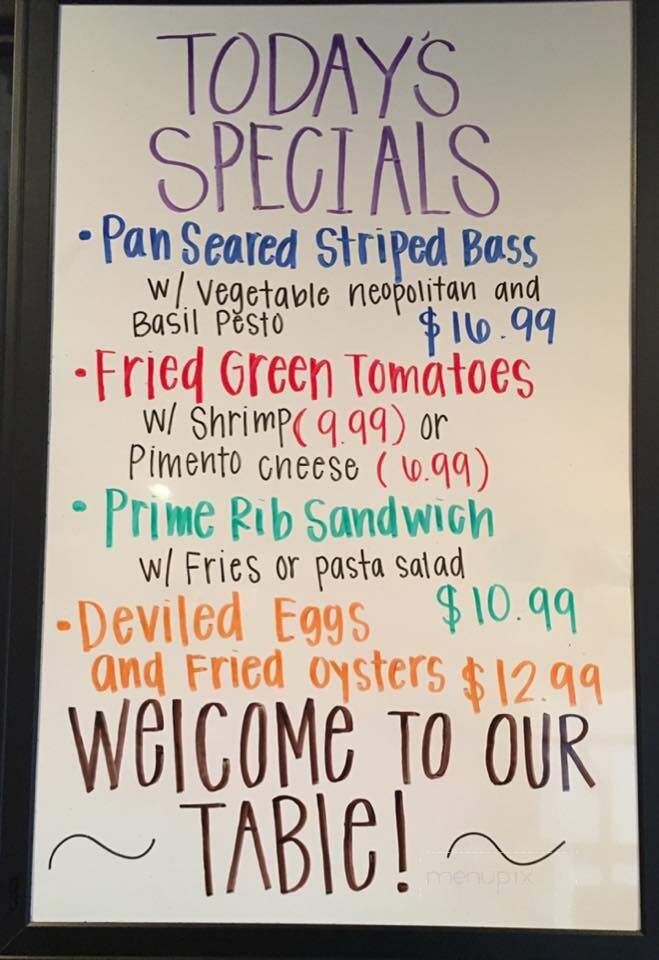 TODAY'S
SPECIALS
• Pan Seared Striped Bass
w/ Vegetable neopolitan and
Basil Pesto $16.99
• Fried Green Tomatoes
w/ Shrimp (9.99) or
Pimento cheese (6.99)
• Prime Rib Sandwich
w/ Fries or pasta salad
$10.99
• Deviled Eggs
and Fried oysters $12.99
WelCOMe TO OUR
TABle!
menupix